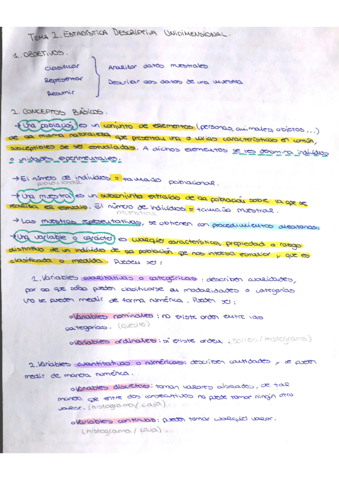 TEMA 1. ESTADÍSTICA DESCRIPTIVA UNIDIMENSIONAL.
1. OBJETIVOS.
Clasificar
Representar
Resumir
Analizar datos muestrales
Describir los datos de una muestra
2. CONCEPTOS BÁSICOS.
→ Una población es un conjunto de elementos (personas, animales, objetos ...)
de la misma naturaleza que presentan una o varias características en común,
susceptibles de ser estudiadas. A dichos elementos se les denomina individuos
o unidades experimentales.
→ El número de individuos = tamaño poblacional.
poblacional
→ Una muestra es un subconjunto extraído de la población sobre la que se
realiza el estudio. El número de individuos = tamaño muestral.
muestral
→ Las muestras representativas, se obtienen con procedimientos aleatorios.
→ Una variable o carácter es cualquier característica, propiedad o rasgo
distintivo de un individuo de la población que nos interesa estudiar y que es
clasificada o medida. Pueden ser:
1. Variables cualitativas o categóricas: describen cualidades,
por lo que sólo pueden clasificarse en modalidades o categorías
No se pueden medir de forma numérica. Pueden ser:
Variables nominales: no existe orden entre las
categorías.
Variables ordinales: si existe orden. (barras / histograma)
2. Variables cuantitativas o numéricas: describen cantidades, se pueden
medir de manera numérica.
Variables discretas: toman valores aislados, de tal
manera que entre dos consecutivos no puede tomar ningún otro
valor. (histograma / caja).
Variables continuas: pueden tomar cualquier valor.
(histograma / caja).